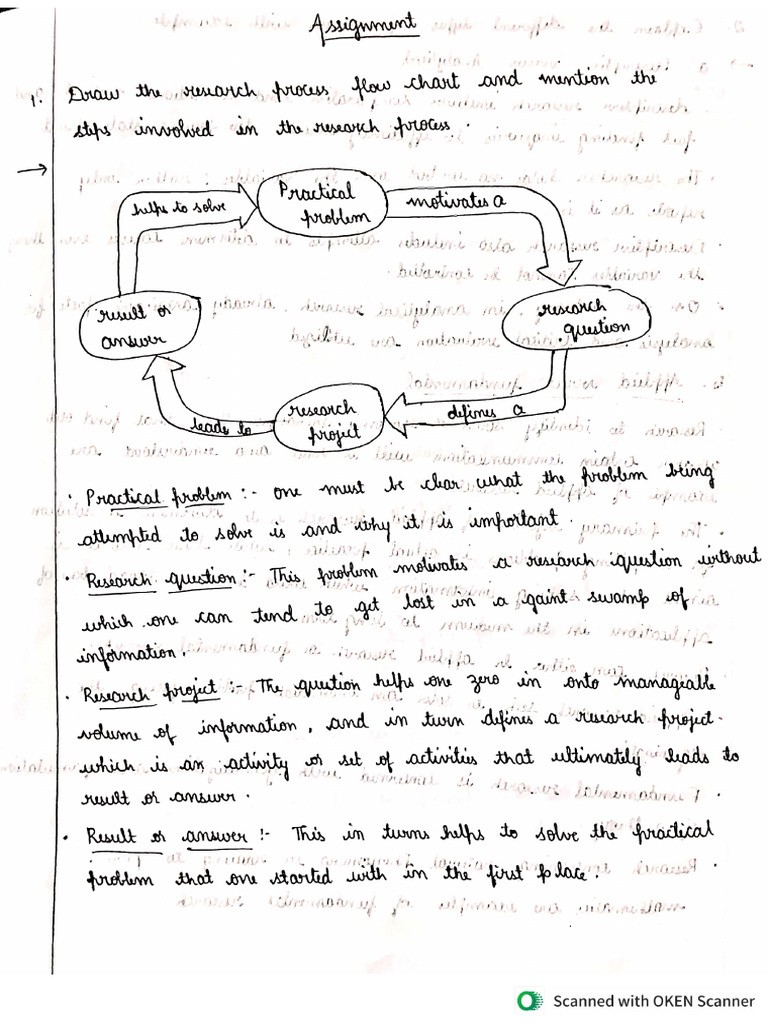 Assignment
1. Draw the research process flow chart and mention the
steps involved in the research process.
→
helps to solve
Practical
problem
motivates a
result or
answer
research
question
leads to
research
projet
defines a
• Practical problem :- one must be clear what the problem being
attempted to solve is and why it is important.
• Research question :- This problem motivates a research question without
which one can tend to get lost in a gaint swamp of
information.
• Research project :- The question helps one zero in onto manageable
volume of information, and in turn defines a research project.
which is an activity or set of activities that ultimately leads to
result or answer.
• Result or answer :- This in turns helps to solve the practical
problem that one started with in the first place.
Scanned with OKEN Scanner